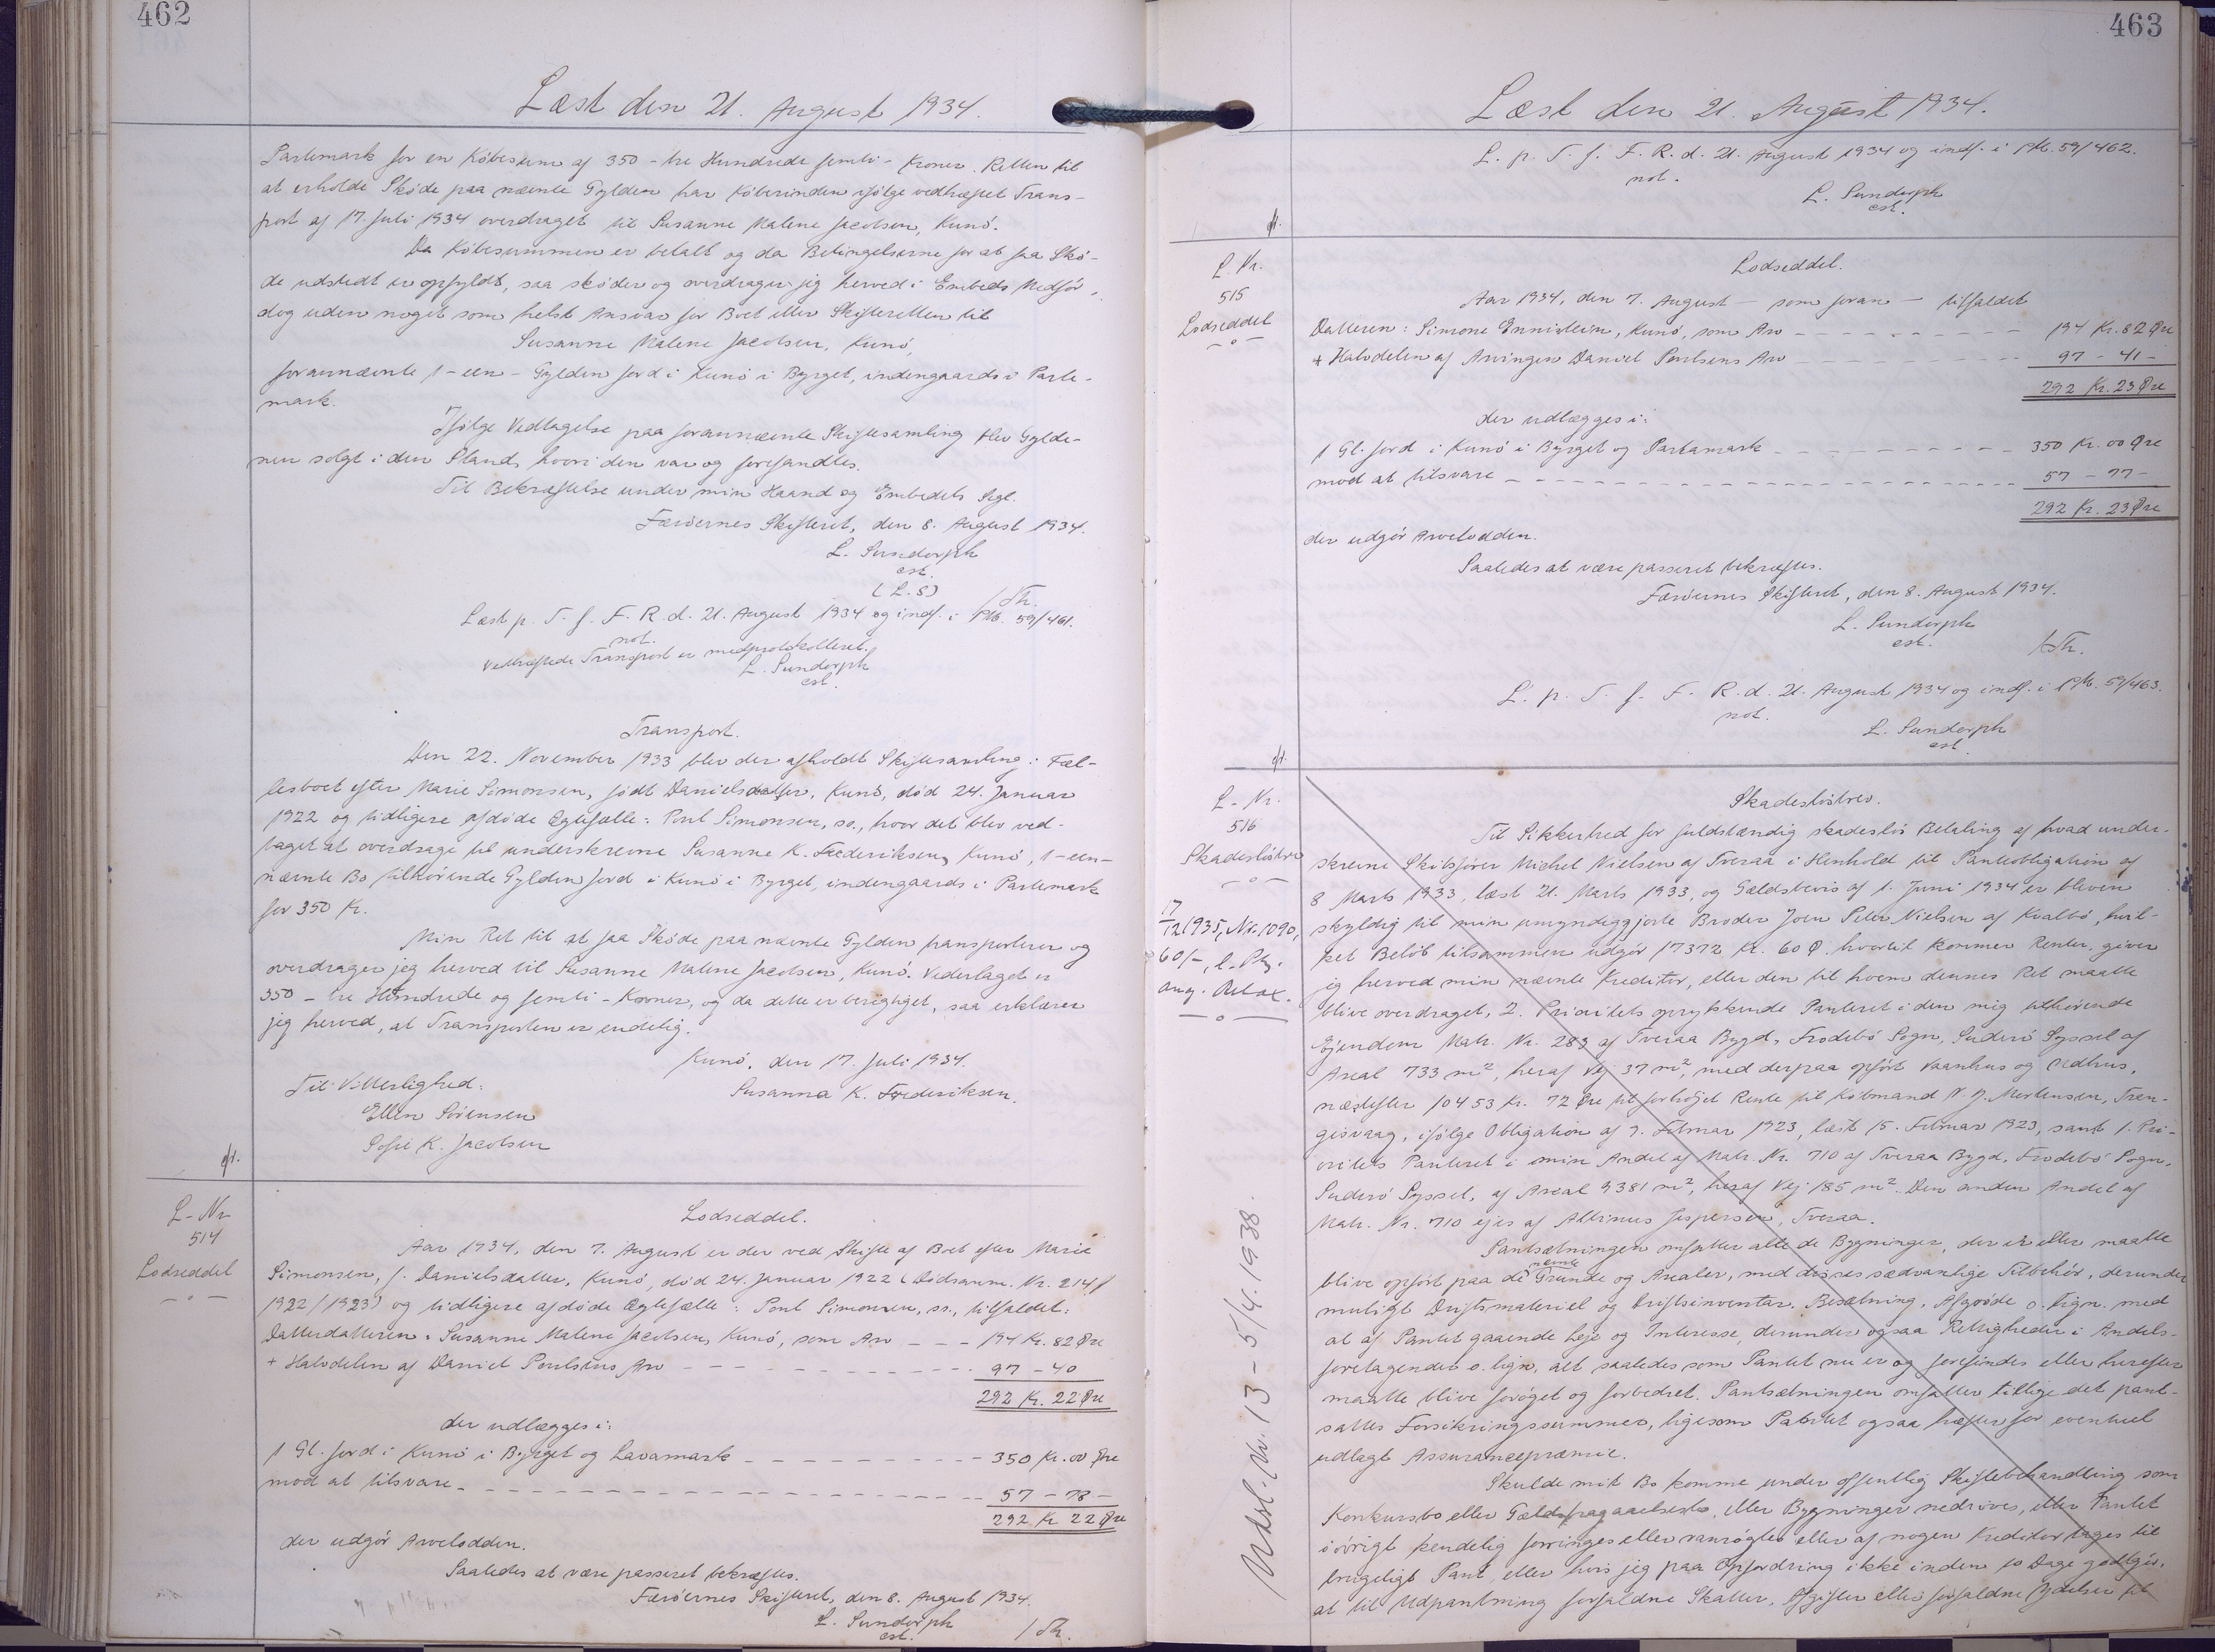 462
Læst den 21. August 1934.
Partemark for en Købesum af 350 - tre Hundrede femti - Kroner. Retten til
at erholde Skøde paa nævnte Gylden har Køberinden ifølge vedhæftet Trans-
port af 17. Juli 1934 overdraget til Susanne Malene Jacobsen, Kunø.
Da Købesummen er betalt og da Betingelserne for at faa Skø-
de udstedt er opfyldt, saa skøder og overdrager jeg herved i Embeds Medfør,
dog uden noget som helst Ansvar for Boet eller Skifteretten til
Susanne Malene Jacobsen, Kunø,
forannævnte 1 - een - Gylden Jord i Kunø i Byrget, indengaards i Parte-
mark.
Ifølge Vedtagelse paa forannævnte Skiftesamling blev Gylde-
nen solgt i den Stand, hvori den var og forefandtes.
Til Bekræftelse under min Haand og Embedets Segl.
Færøernes Skifteret, den 8. August 1934.
L. Sundorph
cst.
(L.S)
/Th.
Læst p. T. f. F. R. d. 21. August 1934 og indf. i Ptk. 59/461.
not.
Vedhæftede Transport er medprotokolleret.
L. Sundorph
cst.
Transport.
Den 22. November 1933 blev der afholdt Skiftesamling i Fæl-
lesboet efter Marie Simonsen, født Danielsdatter, Kunø, død 24. Januar
1922 og tidligere afdøde Ægtefælle: Poul Simonsen, ss., hvor det blev ved-
taget at overdrage til underskrevne Susanne K. Frederiksen, Kunø, 1 - een -
nævnte Bo tilhørende Gylden Jord i Kunø i Byrget, indengaards i Partemark
for 350 Kr.
Min Ret til at faa Skøde paa nævnte Gylden transporterer og
overdrager jeg herved til Susanne Malene Jacobsen, Kunø. Vederlaget er
350 - tre Hundrede og femti - Kroner, og da dette er berigtiget, saa erklærer
jeg herved, at Transporten er endelig.
Kunø, den 17. Juli 1934.
Til Vitterlighed:
Susanna K. Frederiksen.
Ellen Sørensen
Sofie K. Jacobsen
L-Nr
514
Lodseddel
Lodseddel.
Aar 1934, den 7. August er der ved Skifte af Boet efter Marie
Simonsen, f. Danielsdatter, Kunø, død 24. Januar 1922 (Dødsanm. Nr. 214/
1922/1923) og tidligere afdøde Ægtefælle: Poul Simonsen, ss., tilfaldet:
Datterdatteren: Susanne Malene Jacobsen, Kunø, som Arv - - - 194 Kr. 82 Øre
+ Halvdelen af Daniel Poulsens Arv - - - 97 - 40
292 Kr. 22 Øre
der udlægges i:
1 Gl. Jord i Kunø i Byrget og Lavamark - - - 350 Kr. 00 Øre
mod at tilsvare - - - 57 - 78 -
292 Kr 22 Øre
der udgør Arvelodden.
Saaledes at være passeret bekræftes.
Færøernes Skifteret, den 8. August 1934.
L. Sundorph
cst.
/Th.
463
Læst den 21. August 1934.
L. p. T. f. F. R. d. 21. August 1934 og indf. i Ptk. 59/462.
not.
L. Sundorph
cst.
L. Nr.
515
Lodseddel
Lodseddel.
Aar 1934, den 7. August - som foran - tilfaldet
Datteren: Simone Ennistein, Kunø, som Arv - - - 194 Kr. 82 Øre
+ Halvdelen af Arvingen Daniel Poulsens Arv - - - 97 - 41 -
292 Kr. 23 Øre
der udlægges i:
1 Gl. Jord i Kunø i Byrget og Partamark - - - 350 Kr. 00 Øre
mod at tilsvare - - - 57 - 77 -
292 Kr. 23 Øre
der udgør Arvelodden.
Saaledes at være passeret bekræftes.
Færøernes Skifteret, den 8. August 1934.
L. Sundorph
cst.
/Th.
L. p. T. f. F. R. d. 21. August 1934 og indf. i Ptk. 59/463.
not.
L. Sundorph
cst.
L-Nr.
516
Skadesløsbrev
17/12 1935, Nr. 1090,
60/-, l. Ptg.
ang. Relax.
Udsl. Nr. 13 - 5/4. 1938.
Skadesløsbrev.
Til Sikkerhed for fuldstændig skadesløs Betaling af hvad under-
skrevne Skibsfører Michel Nielsen af Tveraa i Henhold til Panteobligation af
8 Marts 1933, læst 21. Marts 1933, og Gældsbevis af 1. Juni 1934 er bleven
skyldig til min umyndiggjorte Broder Joen Peter Nielsen af Kvalbø, hvil-
ket Beløb tilsammen udgør 17372 Kr. 60 Ø. hvortil kommer Renter, giver
jeg herved min nævnte Kreditor, eller den til hvem dennes Ret maatte
blive overdraget, 2. Prioritets oprykkende Panteret i den mig tilhørende
Ejendom Matr. Nr. 283 af Tveraa Bygd, Frodebø Sogn, Suderø Syssel af
Areal 733 m², heraf Vej 37 m², med derpaa opført Vaanhus og Udhus,
næstefter 10453 Kr. 72 Øre til forhøjet Rente til Købmand P. J. Mortensen, Tran-
gisvaag, ifølge Obligation af 7. Februar 1923, læst 15. Februar 1923, samt 1. Pri-
oritets Panteret i min Andel af Matr. Nr. 710 af Tveraa Bygd, Frodebø Sogn,
Suderø Syssel, af Areal 9381 m², heraf Vej 185 m². Den anden Andel af
Matr. Nr. 710 ejes af Albinus Jespersen, Tveraa.
Pantsætningen omfatter alle de Bygninger, der er eller maatte
blive opført paa de nævnte Grunde og Arealer, med disses sædvanlige Tilbehør, derunder
muligt Driftsmateriel og Driftsinventar. Besætning, Afgrøde o. lign. med
al af Pantet gaaende Leje og Interesse, derunder ogsaa Rettigheder i Andels-
foretagender o. lign, alt saaledes som Pantet nu er og forefindes eller herefter
maatte blive forøget og forbedret. Pantsætningen omfatter tillige det pant-
sattes Forsikringssummer, ligesom Pantet ogsaa hæfter for eventuel
udlagt Assurancepræmie.
Skulde mit Bo komme under offentlig Skiftebehandling som
Konkursbo eller Gældsfragaaelsesbo, eller Bygninger nedrives, eller Pantet
iøvrigt kendelig forringes eller vanrøgtes eller af nogen Kreditor tages til
brugeligt Pant, eller hvis jeg paa Opfordring ikke inden 10 Dage godtgør,
at til Udpantning forfaldne Skatter, Afgifter eller forfaldne Ydelser til